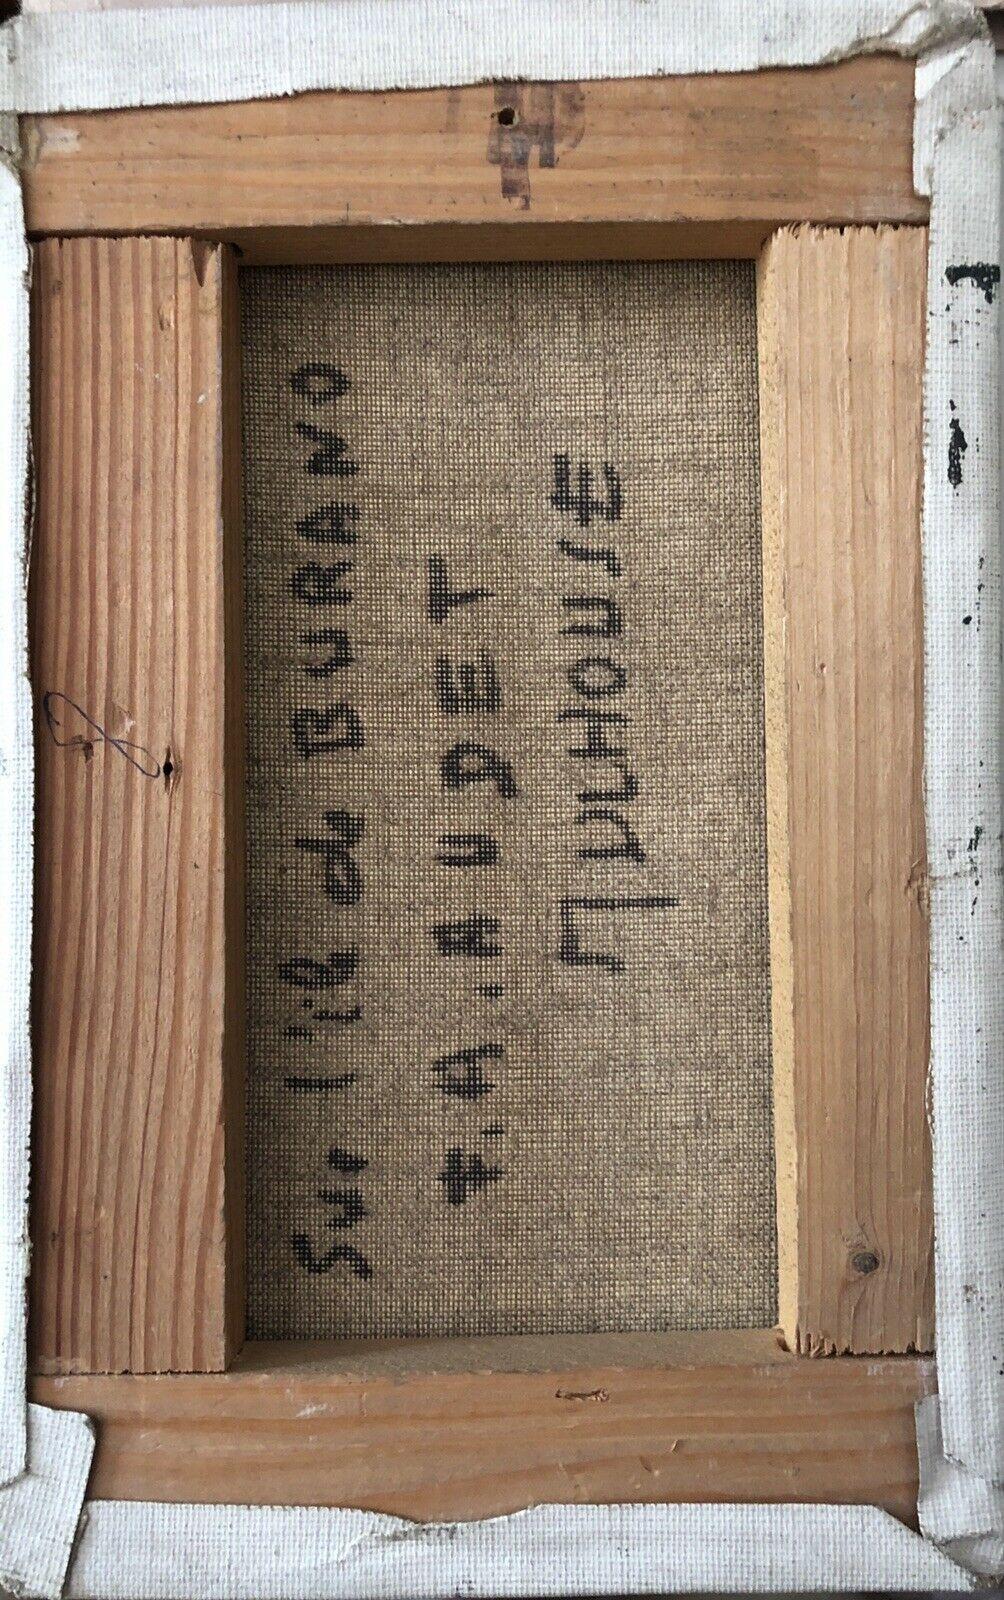 Sur l'île de BURANO
F.A. AUDET
MULHOUSE